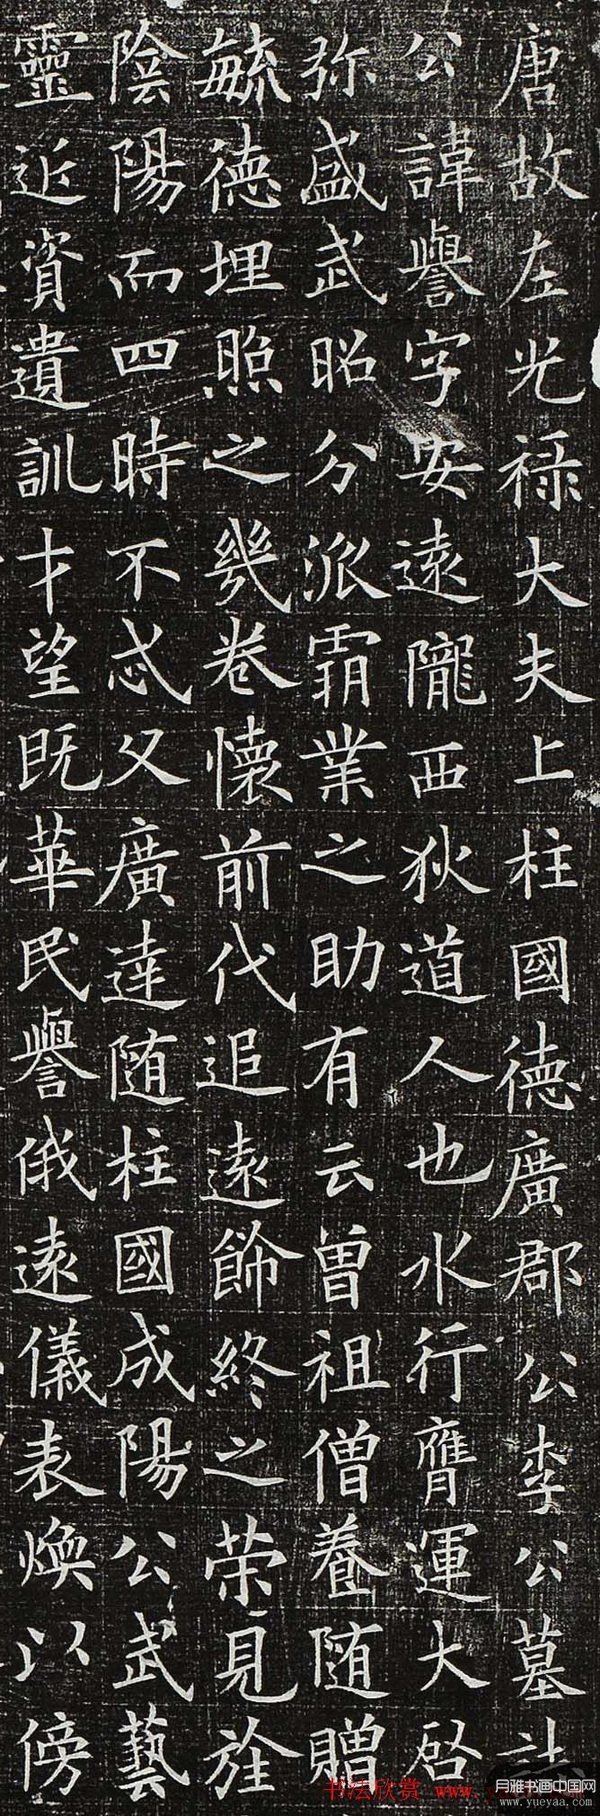 唐故左光禄大夫上柱國德廣郡公李公墓誌
公諱譽字安遠隴西狄道人也水行膺運大啓
弥盛武昭分派霸業之助有云曾祖僧養随贈
毓德埋照之幾卷懷前代追遠飾終之荣見旌
陰陽而四時不忒父廣達随柱國成陽公武藝
靈近資遺訓才望既華民譽俄遠儀表焕以傍
书法欣赏 www.
月雅书画中国网
www.yueyaa.com